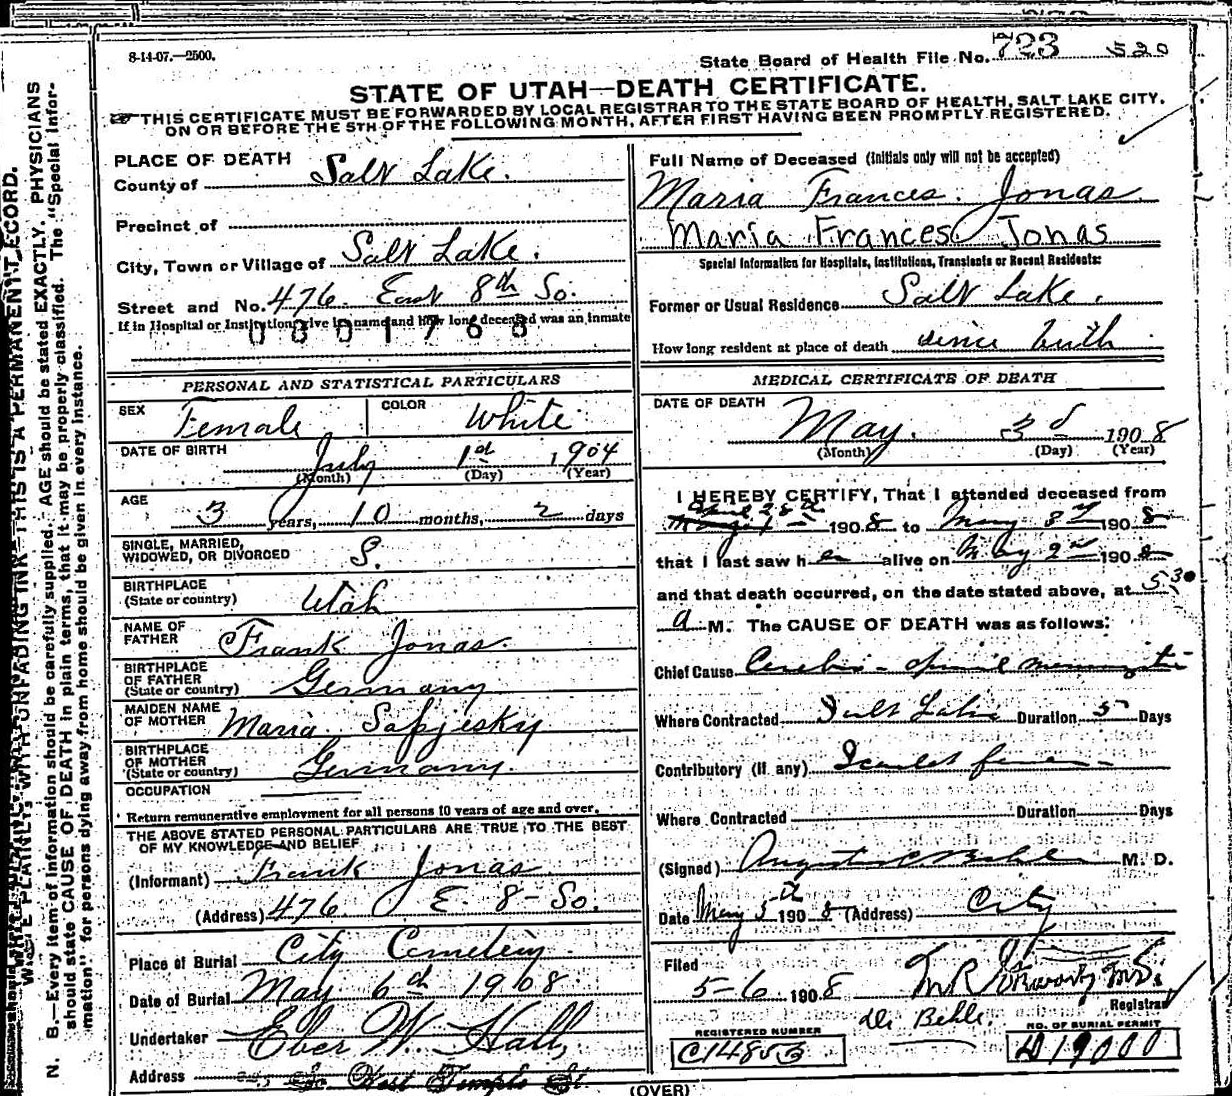 8-14-07.—2500.
State Board of Health File No. 723 520
STATE OF UTAH—DEATH CERTIFICATE.
THIS CERTIFICATE MUST BE FORWARDED BY LOCAL REGISTRAR TO THE STATE BOARD OF HEALTH, SALT LAKE CITY,
ON OR BEFORE THE 5TH OF THE FOLLOWING MONTH, AFTER FIRST HAVING BEEN PROMPTLY REGISTERED.
PLACE OF DEATH
County of Salt Lake.
Precinct of
City, Town or Village of Salt Lake.
Street and No. 476 East 8th So.
If in Hospital or Institution, give its name and how long deceased was an inmate
0001768
PERSONAL AND STATISTICAL PARTICULARS
SEX Female COLOR White
DATE OF BIRTH July 1st 1904
(Month) (Day) (Year)
AGE 3 years, 10 months, 2 days
SINGLE, MARRIED,
WIDOWED, OR DIVORCED S.
BIRTHPLACE
(State or country) Utah
NAME OF
FATHER Frank Jonas.
BIRTHPLACE
OF FATHER
(State or country) Germany
MAIDEN NAME
OF MOTHER Maria Sapjesky
BIRTHPLACE
OF MOTHER
(State or country) Germany.
OCCUPATION
Return remunerative employment for all persons 10 years of age and over.
THE ABOVE STATED PERSONAL PARTICULARS ARE TRUE TO THE BEST
OF MY KNOWLEDGE AND BELIEF
(Informant) Frank Jonas
(Address) 476 E. 8- So.
Place of Burial City Cemetery
Date of Burial May 6th 1908
Undertaker Eber W. Hall
Address So. West Temple St.
Full Name of Deceased (Initials only will not be accepted)
Maria Frances Jonas
Maria Frances Jonas
Special Information for Hospitals, Institutions, Transients or Recent Residents:
Former or Usual Residence Salt Lake.
How long resident at place of death since birth
MEDICAL CERTIFICATE OF DEATH
DATE OF DEATH
May. 3d 1908
(Month) (Day) (Year)
I HEREBY CERTIFY, That I attended deceased from
April 28th 1908 to May 3rd 1908
that I last saw her alive on May 2nd 1908
and that death occurred, on the date stated above, at 5 30
a M. The CAUSE OF DEATH was as follows:
Chief Cause Cerebro-spinal meningitis
Where Contracted Salt Lake Duration 5 Days
Contributory (if any) Scarlet fever
Where Contracted Duration Days
(Signed) M. D.
Date May 5th 1908 (Address) City
Filed
5-6 1908 M.D.
Registrar
Dr Behle.
REGISTERED NUMBER
C14853
NO. OF BURIAL PERMIT
D19000
(OVER)
N. B.—Every item of information should be carefully supplied. AGE should be stated EXACTLY. PHYSICIANS
should state CAUSE OF DEATH in plain terms, that it may be properly classified. The "Special Infor-
mation" for persons dying away from home should be given in every instance.
WRITE PLAINLY, WITH UNFADING INK—THIS IS A PERMANENT RECORD.